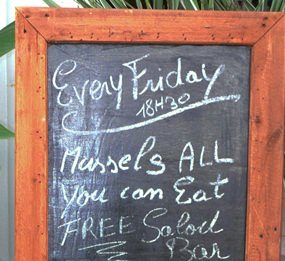 Every Friday
18H30
Mussels ALL
You can Eat
FREE Salad
Bar